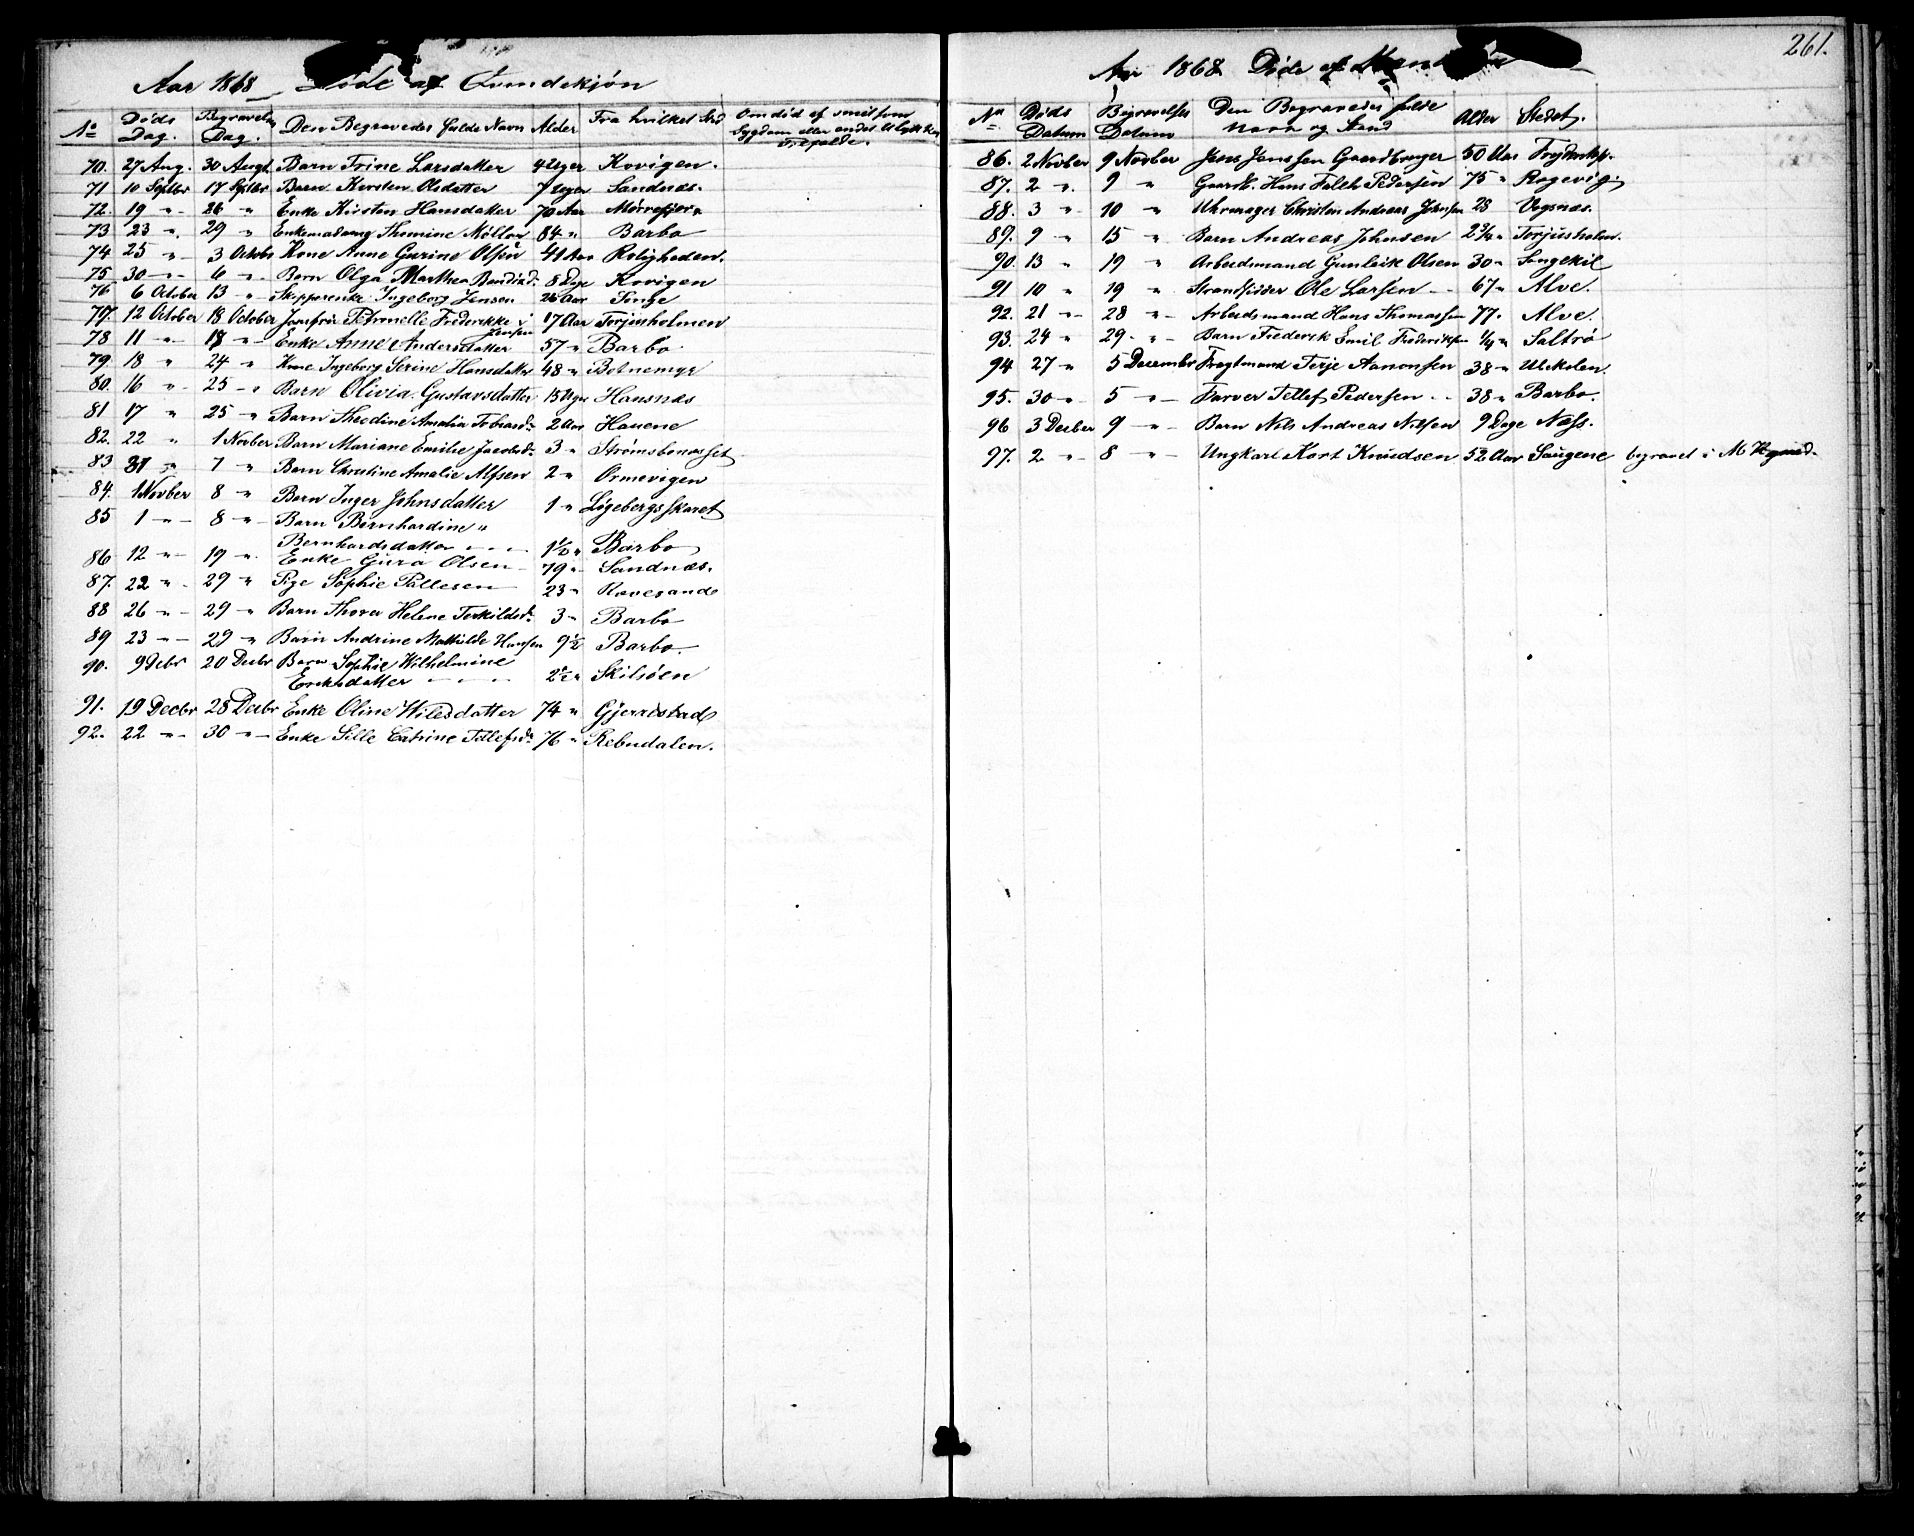 261.
Aar 1868 Døde af Qvindekjøn
No Døds Dag. Begravelses Dag. Den Begravedes fulde Navn Alder Fra hvilket Sted Om død af smitsom Sygdom eller andet Ulykkes tilfælde.
70. 27 Aug. 30 Augt Barn Trine Larsdatter 4 Uger Kovigen.
71 10 Septbr 17 Sptbr Barn Kirsten Olsdatter 7 Uger Sandnæs.
72. 19 " - 26 " Enke Kirsten Hansdatter 70 Aar Mørrefjær
73 23 " . 29 " Enkemadam Thomine Møller 84 " Barbo
74 25 " - 3 Octobr Kone Anne Gurine Olsen 41 Aar Roligheden.
75 30 - " - 6 " - Barn Olga Marthea Bendixd. 8 Dage Kovigen
76 6 October 13 " - Skipperenke Ingeborg Jensen 26 Aar Tinge
77. 12 October 18 October Jomfru Petronelle Fredrikke Jensen 17 Aar Torjusholmen
78 11 " - 18 " - Enke Anne Andersdatter 57 " Barbo
79 18 " 24 " Kone Ingeborg Serine Hansdatter 48 " Botnemyr
80. 16 " - 25 - " Barn Olivia Gustavsdatter 15 Uger Hausnæs
81 17 " 25 " - Barn Theodine Amalia Tobiasd. 2 Aar Hauene
82. 22 " 1 Novber Barn Mariane Emilie Jacobsd. 3 " Strømsbonesset
83 31 " 7 " Barn Christine Amalie Alfsen 2 " Ormevigen
84. 1 Novber 8 " Barn Inger Johnsdatter 1 " Løgebergsskaret
85 1 - " - 8 " - Barn Bernhardine "
Bernhardsdatter - - - 1½ " Barbo
86 12 " - 19 " . Enke Gura Olsen - 79 " Sandnæs.
87. 22 " - 29 " Pige Sophie Pallesen 23 " Kovesand
88 26 " - 29 " Barn Thora Helene Terkildsd. 3 " Barbo
89 23 " - 29 " Barn Andrine Mathilde Hansen 9½ Barbo.
90. 9 Decbr 20 Decbr Barn Sophie Wilhelmine
Eriksdatter - - - 2½ " Skilsøen
91. 19 Decbr 28 Decbr Enke Oline Nilsdatter 74 " Gjerrestad
92. 22 " - 30 " - Enke Sille Catrine Tellefsd. 76 " Rebudalen.
Aar 1868 Døde af Mank
No Døds Datum Begravelses Datum Den Begravedes fulde Navn og Stand Alder Stedet.
86. 2 Novber 9 Novber Jens Jenssen Gaardbruger 50 Aar
87. 2 " . 9 " Gaardb. Hans Falch Pedersen 75 " Rogevig.
88. 3 " - 10 " Uhrmager Christen Andreas Johnsen 23 Vogsnæs.
89. 9 " 15 " - Barn Andreas Johnsen 2¾ " Torjusholm.
90. 13 " 19 " Arbeidsmand Gunleik Olsen 30 " Songekil
91 10 " 19 " Strandsidder Ole Larsen - - 67 " Alve.
92. 21 " - 28 " - Arbeidsmand Hans Thomassen 77. Alve.
93. 24 " 29. " . Barn Frederik Emil Frederiksen ¼ " Saltrø
94 27 " 5 December Fragtmand Terje Aanonsen 38 " Ulekolen.
95. 30 " . 5 " - Farver Tellef Pedersen - - 38 " Barbo.
96 3 Decber 9 " - Barn Nils Andreas Nilsen 9 Dage Næss.
97. 2 " . 8 " - Ungkarl Kort Knudsen 52 Aar Saugene begravet i